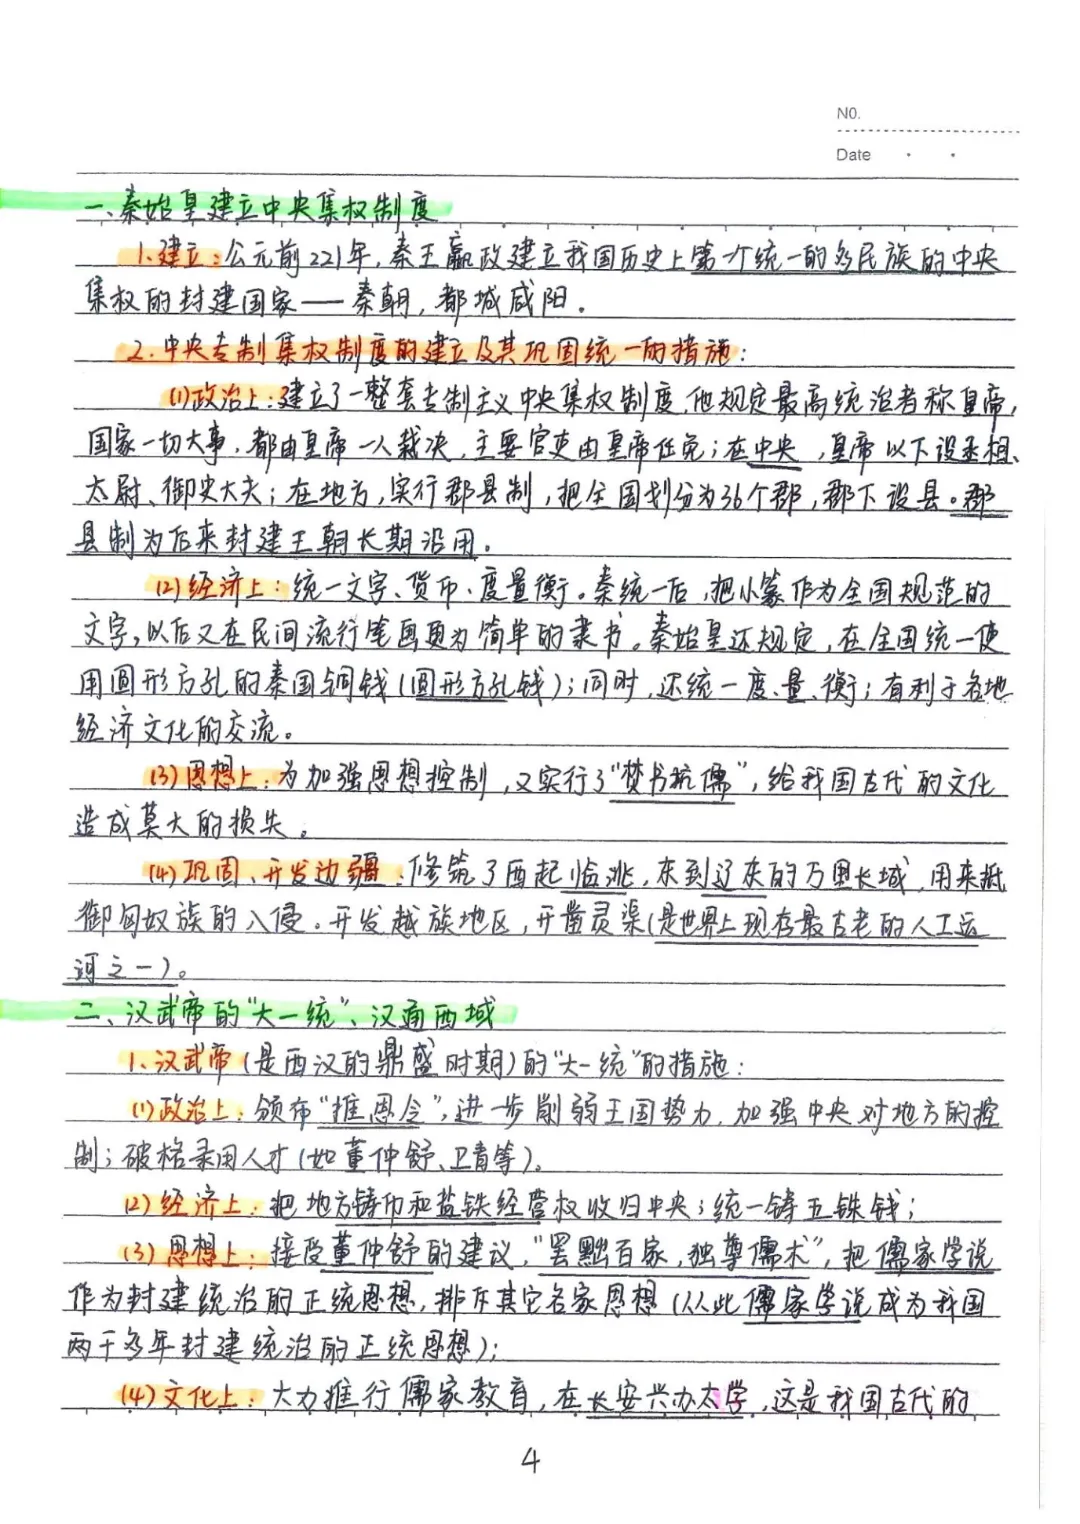 NO.
Date
一、秦始皇建立中央集权制度
1.建立:公元前221年,秦王嬴政建立我国历史上第一个统一的多民族的中央
集权的封建国家——秦朝,都城咸阳.
2.中央专制集权制度的建立及其巩固统一的措施:
(1)政治上:建立了一整套专制主义中央集权制度,他规定最高统治者称皇帝,
国家一切大事,都由皇帝一人裁决,主要官吏由皇帝任免;在中央,皇帝以下设丞相、
太尉、御史大夫;在地方,实行郡县制,把全国划分为36个郡,郡下设县。郡
县制为后来封建王朝长期沿用。
(2)经济上:统一文字、货币、度量衡。秦统一后,把小篆作为全国规范的
文字,以后又在民间流行笔画更为简单的隶书。秦始皇还规定,在全国统一使
用圆形方孔的秦国铜钱(圆形方孔钱);同时,还统一度、量、衡;有利于各地
经济文化的交流。
(3)思想上:为加强思想控制,又实行了“焚书坑儒”,给我国古代的文化
造成莫大的损失。
(4)巩固、开发边疆:修筑了西起临洮,东到辽东的万里长城,用来抵
御匈奴族的入侵。开发越族地区,开凿灵渠(是世界上现存最古老的人工运
河之一)。
二、汉武帝的“大一统”、汉通西域
1、汉武帝(是西汉的鼎盛时期)的“大一统”的措施:
(1)政治上:颁布“推恩令”,进一步削弱王国势力,加强中央对地方的控
制;破格录用人才(如董仲舒、卫青等)。
(2)经济上:把地方铸币和盐铁经营权收归中央;统一铸五铢钱;
(3)思想上:接受董仲舒的建议,“罢黜百家,独尊儒术”,把儒家学说
作为封建统治的正统思想,排斥其它各家思想(从此儒家学说成为我国
两千多年封建统治的正统思想);
(4)文化上:大力推行儒家教育,在长安兴办太学,这是我国古代的
4